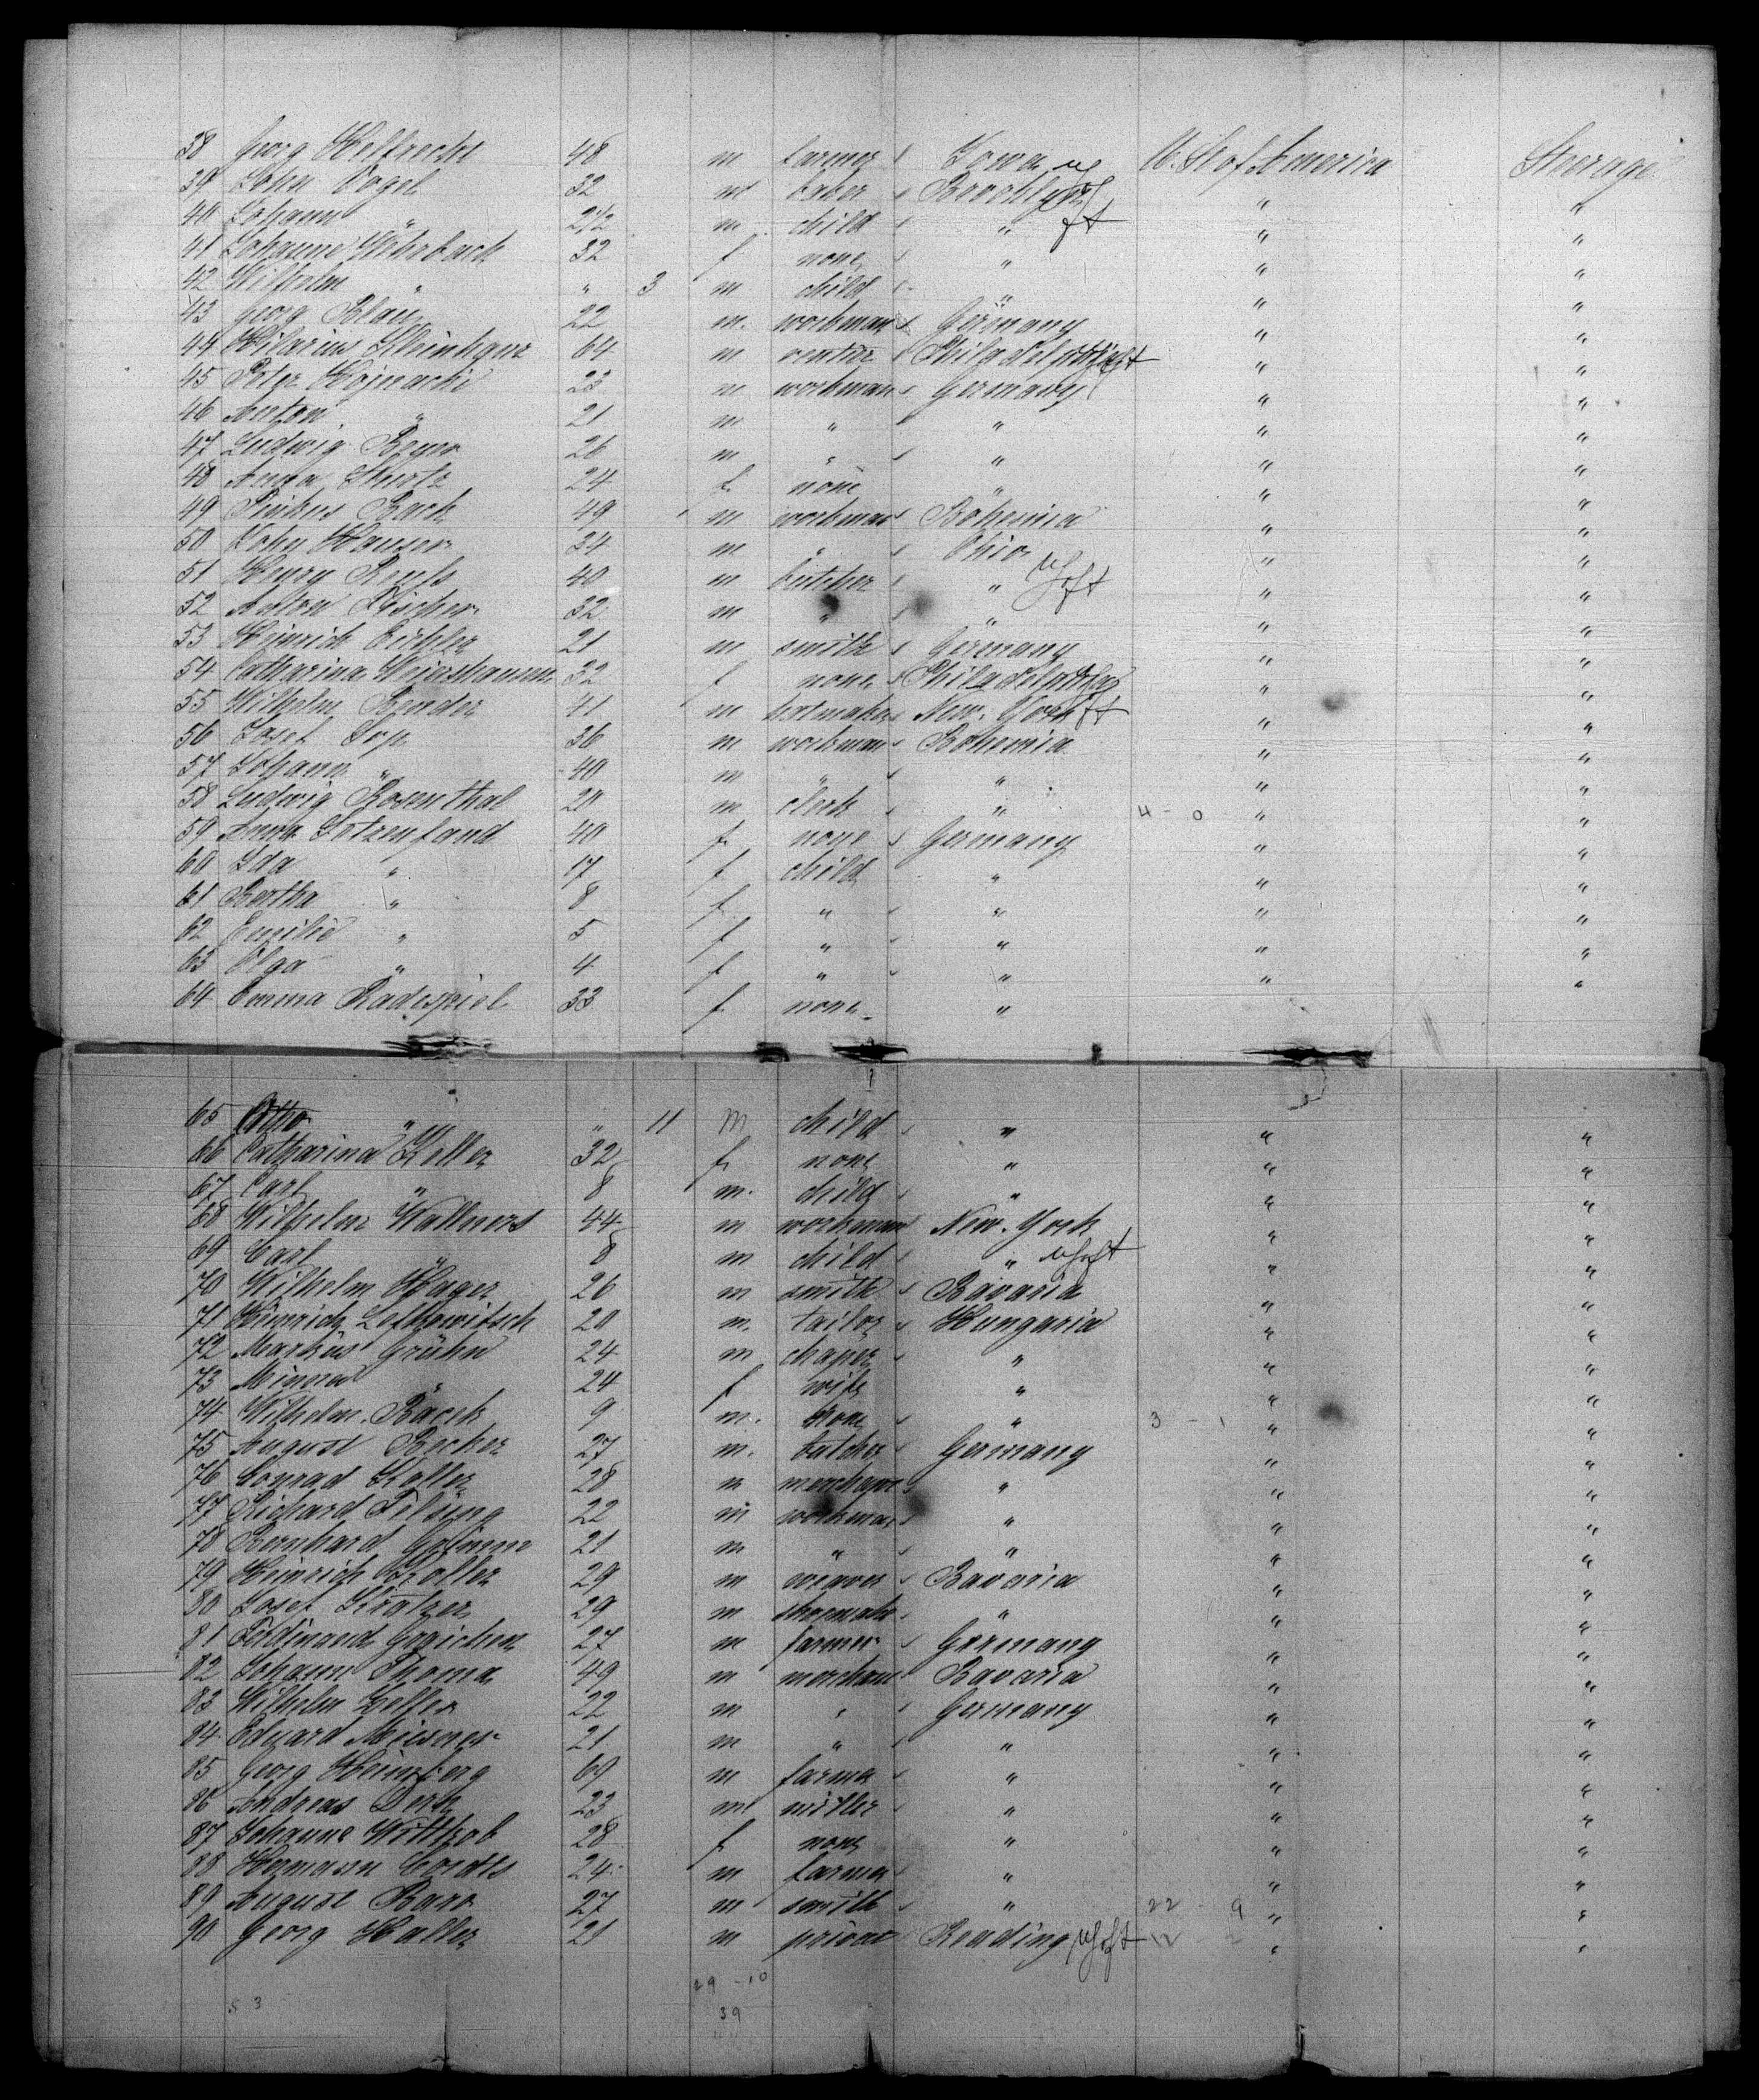 38 Georg Helfrecht 48 m farmer Iowa U. St of America Steerage
39 John Vogel 32 m baker Brooklyn " "
40 Johann " 2 1/2 m child " " "
41 Johanne Rohrbach 32 f none " " "
42 Wilhelm " " 3 m child " " "
43 Georg Blau 22 m. workman Germany " "
44 Hilarius Kleinhanz 64 m rentier Philadelphia " "
45 Peter Wojnacki 23 m workman Germany " "
46 Anton " 21 m " " " "
47 Ludwig Beyer 26 m " " " "
48 Anna 24 f none " " "
49 Pinkus Back 49 m workman Bohemia " "
50 John Hauser 34 m " Ohio " "
51 Henry 40 m butcher " " "
52 Anton Fischer 32 m " " " "
53 Heinrich Eichler 21 m smith Germany " "
54 Catharina Weiershausen 32 f none Philadelphia " "
55 Wilhelm Bender 41 m New-York " "
56 Josef 36 m workman Bohemia " "
57 Johann " 40 m " " " "
58 Ludwig Rosenthal 20 m clerk " 4 - 0 " "
59 Anna 40 f none Germany " "
60 Ida " 17 f child " " "
61 Bertha " 8 f " " " "
62 Emilie " 5 f " " " "
63 Olga " 4 f " " " "
64 Emma Radespiel 33 f none " " "
65 Otto " " 11 m child " " "
66 Catharina Keller 32 f none " " "
67 Carl " 8 m. child " " "
68 Wilhelm Wallners 44 m workman New-York " "
69 Carl " 8 m child " " "
70 Wilhelm Hager 26 m smith Bavaria " "
71 Heinrich Lefkowitsch 20 m. tailor Hungaria " "
72 Markus Grühn 24 m " " "
73 Minna " 24 f wife " " "
74 Wilhelm Back 9 m. none " 3 - 1 " "
75 August Becker 27 m. butcher Germany " "
76 Conrad Keller 28 m merchant " " "
77 Richard Felsing 22 m workman " " "
78 Bernhard Grimm 21 m " " " "
79 Heinrich Zoller 29 m weaver Bavaria " "
80 Josef Kratzer 29 m shoemaker " " "
81 Ferdinand 27 m farmer Germany " "
82 Johann Thoma 49 m merchant Bavaria " "
83 Wilhelm Zeller 22 m " Germany " "
84 Eduard Meisner 21 m " " " "
85 Georg Heinzberg 69 m farmer " " "
86 Andreas 23 m miller " " "
87 Johanne Wittkob 28 f none " " "
88 Hermann Cordts 24 m farmer " " "
89 August Baro 27 m smith " 22 - 9 " "
90 Georg Haller 21 m privat Reading " "
29 - 10
53 39